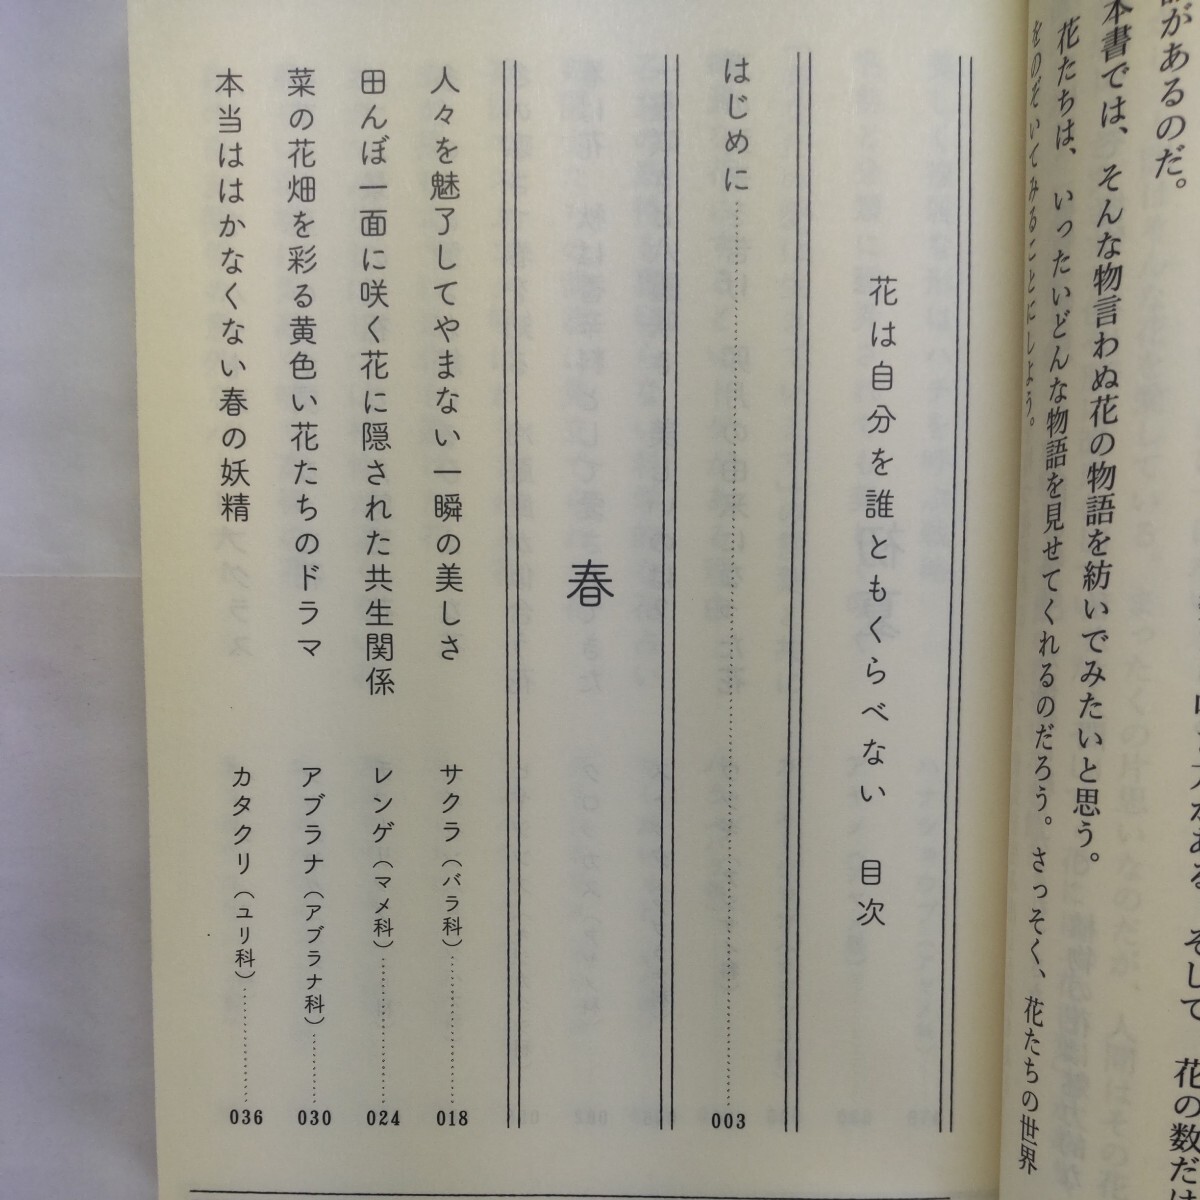 があるのだ。
本書では、そんな物言わぬ花の物語を紡いでみたいと思う。
花たちは、いったいどんな物語を見せてくれるのだろう。さっそく、花たちの世界
をのぞいてみることにしよう。
花は自分を誰ともくらべない　目次
はじめに……003
春
人々を魅了してやまない一瞬の美しさ　サクラ（バラ科）……018
田んぼ一面に咲く花に隠された共生関係　レンゲ（マメ科）……024
菜の花畑を彩る黄色い花たちのドラマ　アブラナ（アブラナ科）……030
本当ははかなくない春の妖精　カタクリ（ユリ科）……036